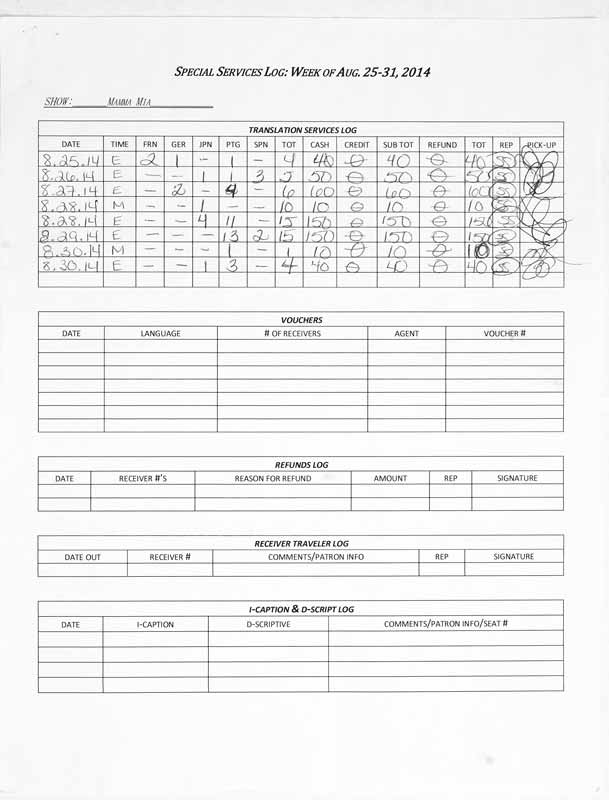 SPECIAL SERVICES LOG: WEEK OF AUG. 25-31, 2014
SHOW: MAMMA MIA
TRANSLATION SERVICES LOG
DATE TIME FRN GER JPN PTG SPN TOT CASH CREDIT SUB TOT REFUND TOT REP PICK-UP
8.25.14 E 2 1 - 1 - 4 40 0 40 0 40
8.26.14 E - - 1 1 3 5 50 0 50 0 50
8.27.14 E - 2 - 4 - 6 60 0 60 0 60
8.28.14 M - - 1 - - 10 10 0 10 0 10
8.28.14 E - - 4 11 - 15 150 0 150 0 150
8.29.14 E - - - 13 2 15 150 0 150 0 150
8.30.14 M - - - 1 - 1 10 0 10 0 10
8.30.14 E - - 1 3 - 4 40 0 40 0 40
VOUCHERS
DATE LANGUAGE # OF RECEIVERS AGENT VOUCHER #
REFUNDS LOG
DATE RECEIVER #'S REASON FOR REFUND AMOUNT REP SIGNATURE
RECEIVER TRAVELER LOG
DATE OUT RECEIVER # COMMENTS/PATRON INFO REP SIGNATURE
I-CAPTION & D-SCRIPT LOG
DATE I-CAPTION D-SCRIPTIVE COMMENTS/PATRON INFO/SEAT #